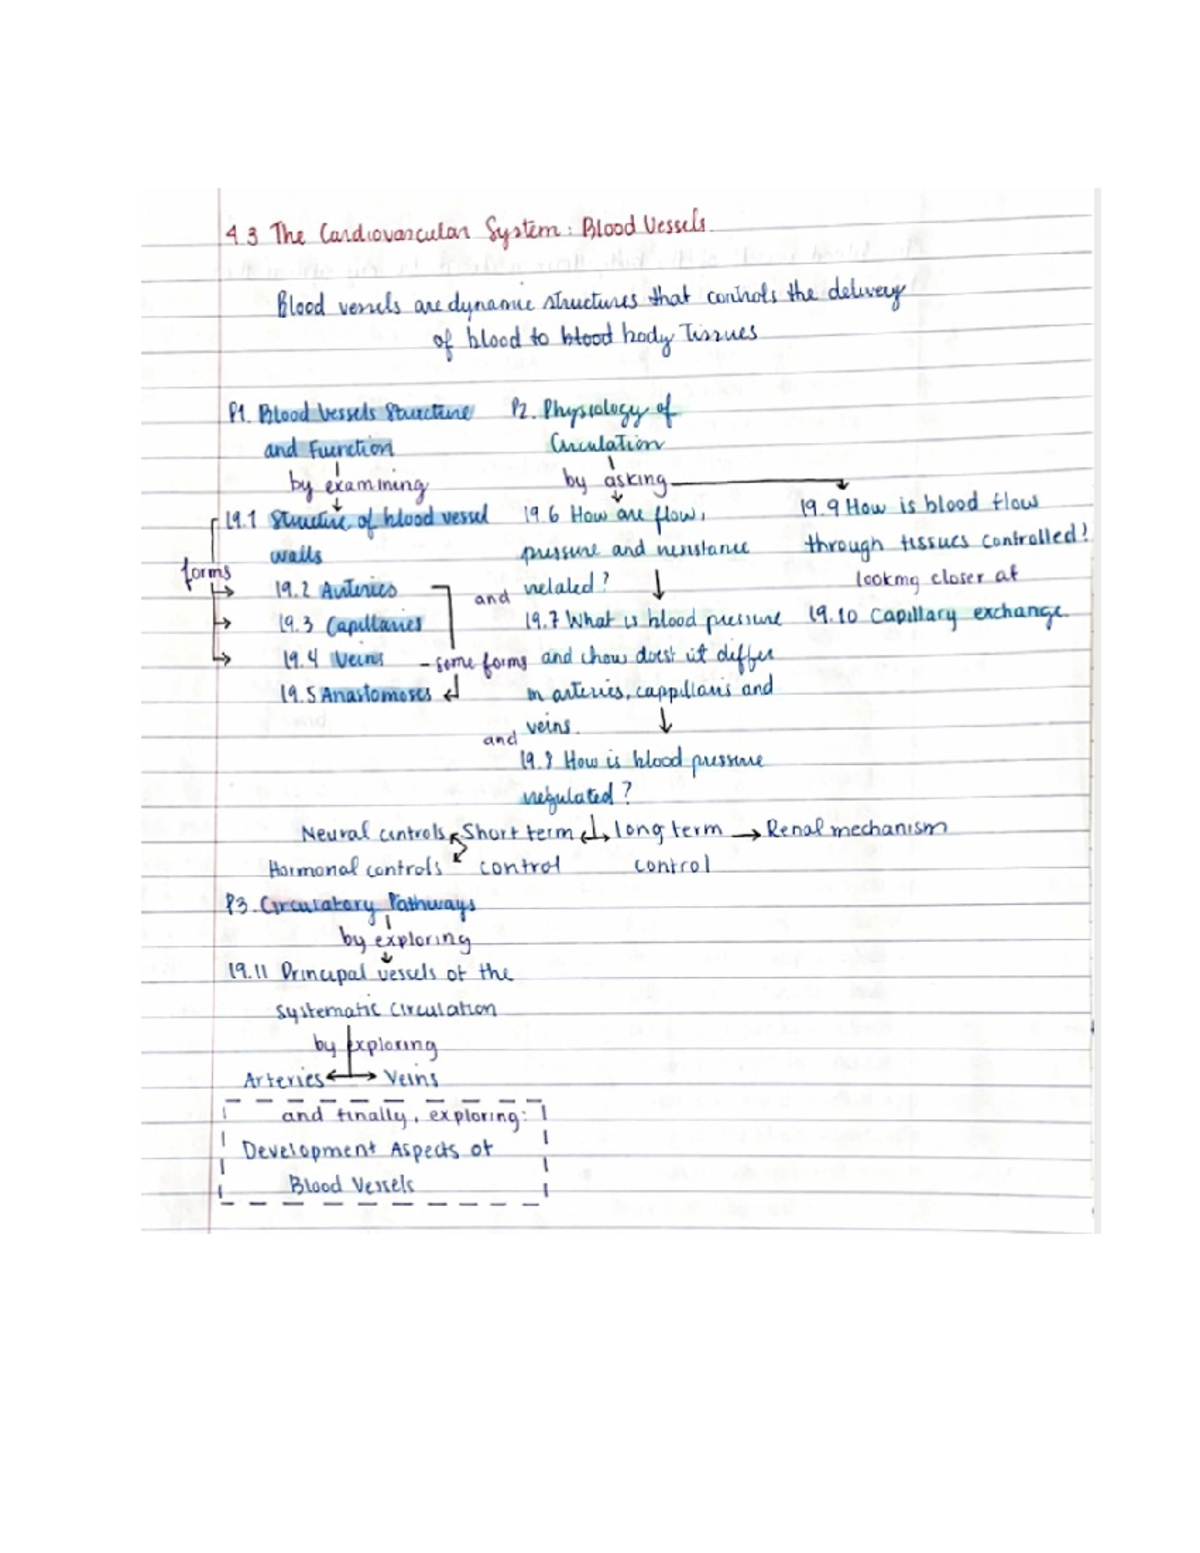 4.3 The Cardiovascular System: Blood Vessels
Blood vessels are dynamic structures that controls the delivery
of blood to blood body Tissues
P1. Blood Vessels Structure
and Function
by examining
19.1 Structure of blood vessel
walls
forms
19.2 Arteries
19.3 Capillaries
19.4 Veins - some forms
19.5 Anastomoses
P2. Physiology of
Circulation
by asking
19.6 How are flow,
pressure and resistance
and related?
19.7 What is blood pressure
and chow doest it differ
in arteries, cappillaris and
veins.
and
19.8 How is blood pressure
regulated?
19.9 How is blood flow
through tissues controlled?
looking closer at
19.10 Capillary exchange
Neural controls Short term long term → Renal mechanism
Hormonal controls control control
P3. Circulatory Pathways
by exploring
19.11 Principal vessels of the
Systematic Circulation
by exploring
Arteries Veins
and finally, exploring:
Development Aspects of
Blood Vessels